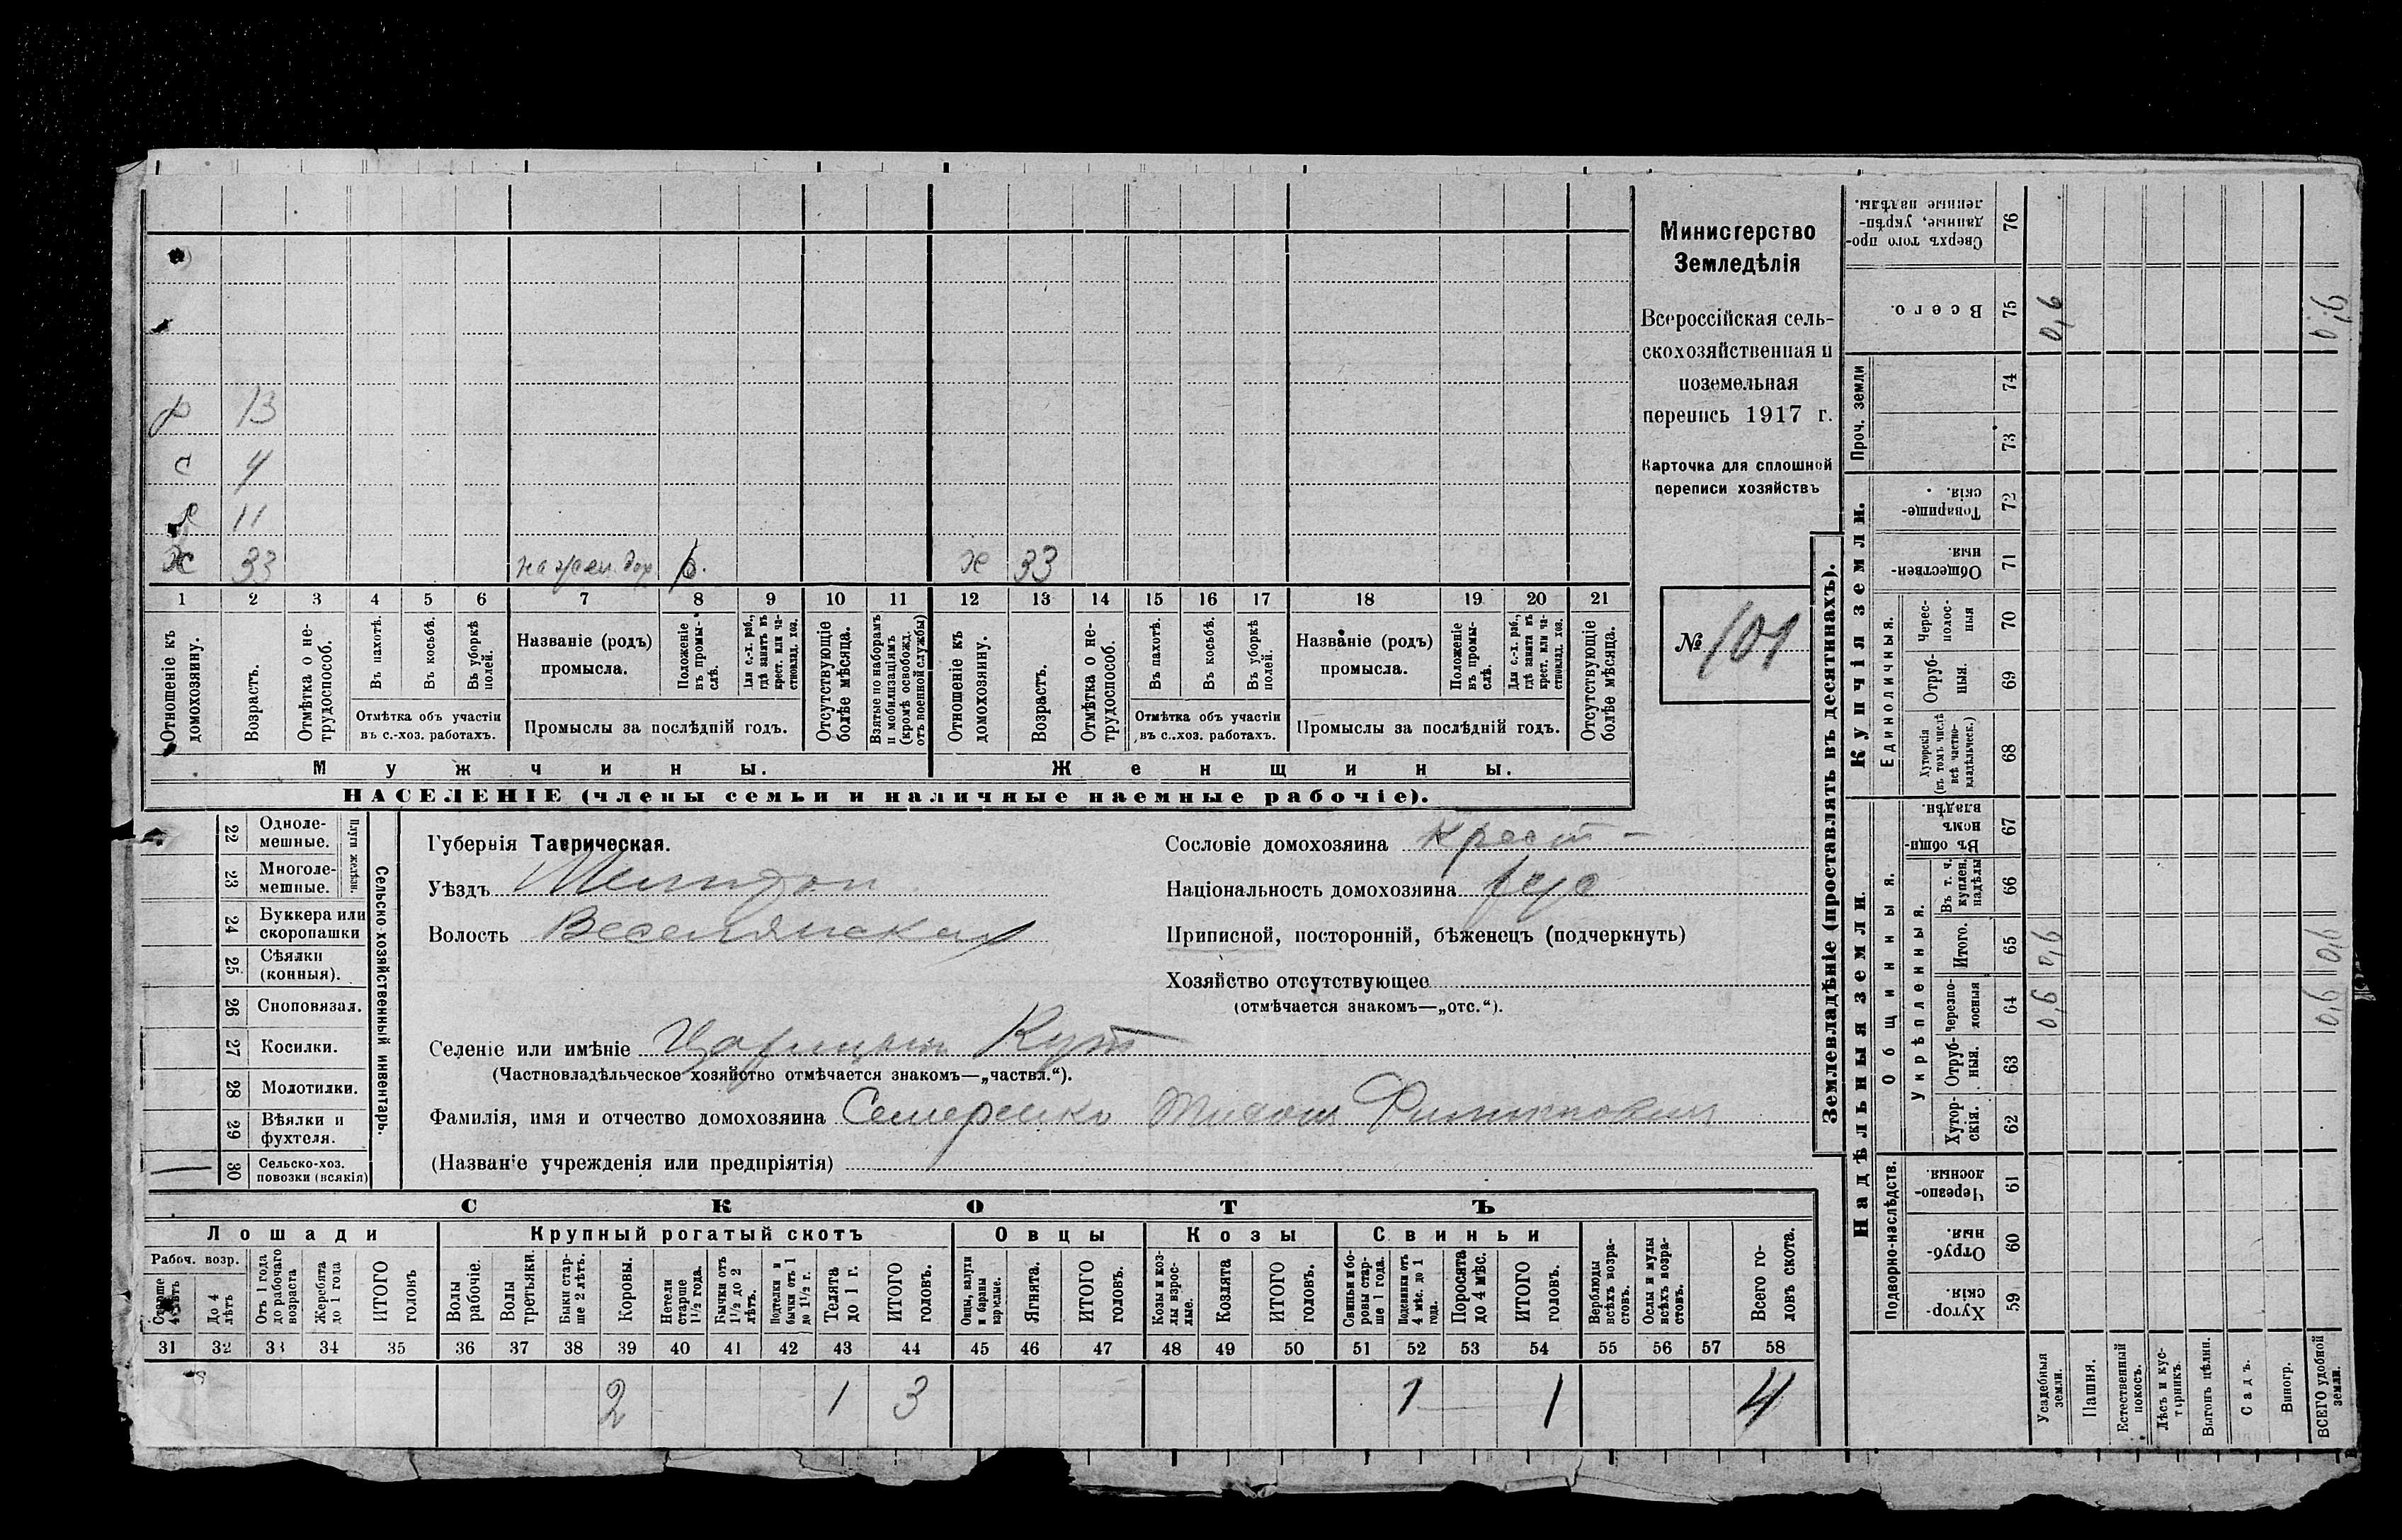 р 13
с 4
с 11
х 33 на жел. дор. р. х 33
1 2 3 4 5 6 7 8 9 10 11 12 13 14 15 16 17 18 19 20 21
Отношеніе къ домохозяину.
Возрастъ.
Отмѣтка о нетрудоспособ.
Въ пахотѣ.
Въ косьбѣ.
Въ уборкѣ полей.
Отмѣтка объ участіи
въ с.-хоз. работахъ.
Названіе (родъ)
промысла.
Положеніе въ промыслѣ.
Для с.-х. раб., гдѣ занятъ въ крест. или частновлад. хоз.
Промыслы за послѣдній годъ.
Отсутствующіе болѣе мѣсяца.
Взятые по наборамъ и мобилизаціямъ (кромѣ освобожд. отъ военной службы)
Отношеніе къ домохозяину.
Возрастъ.
Отмѣтка о нетрудоспособ.
Въ пахотѣ.
Въ косьбѣ.
Въ уборкѣ полей.
Отмѣтка объ участіи
въ с.-хоз. работахъ.
Названіе (родъ)
промысла.
Положеніе въ промыслѣ.
Для с.-х. раб., гдѣ занятъ въ крест. или частновлад. хоз.
Промыслы за послѣдній годъ.
Отсутствующіе болѣе мѣсяца.
Мужчины. Женщины.
НАСЕЛЕНІЕ (члены семьи и наличные наемные рабочіе).
Министерство
Земледѣлія
Всероссійская сель-
скохозяйственная и
поземельная
перепись 1917 г.
Карточка для сплошной
переписи хозяйствъ
№ 101
22 Одноле-
мешные.
23 Многоле-
мешные.
Плуги желѣзн.
24 Буккера или
скоропашки
25 Сѣялки
(конныя).
26 Сноповязал.
27 Косилки.
28 Молотилки.
29 Вѣялки и
фухтеля.
30 Сельско-хоз.
повозки (всякія)
Сельско-хозяйственный инвентарь.
Губернія Таврическая.
Уѣздъ Мелитоп.
Волость Веселянская
Сословіе домохозяина Крест-
Національность домохозяина рус
Приписной, посторонній, бѣженецъ (подчеркнуть)
Хозяйство отсутствующее
(отмѣчается знакомъ—„отс.“).
Селеніе или имѣніе Царицынъ Кутъ
(Частновладѣльческое хозяйство отмѣчается знакомъ—„частвл.“).
Фамилія, имя и отчество домохозяина Семеренко Филипповичъ
(Названіе учрежденія или предпріятія)
СКОТЪ
Лошади Крупный рогатый скотъ Овцы Козы Свиньи
Рабоч. возр.
Старше 4 лѣтъ
До 4 лѣтъ
Отъ 1 года до рабочаго возраста
Жеребята до 1 года
ИТОГО головъ
Волы рабочіе.
Волы третьяки.
Быки старше 2 лѣтъ.
Коровы.
Нетели старше 1½ года.
Бычки отъ 1½ до 2 лѣтъ.
Подтелки и бычки отъ 1 до 1½ г.
Телята до 1 г.
ИТОГО головъ.
Овцы, валухи и бараны взрослые.
Ягнята.
ИТОГО головъ.
Козы и козлы взрослые.
Козлята
ИТОГО головъ.
Свиньи и боровы старше 1 года.
Подсвинки отъ 4 мѣс. до 1 года.
Поросята до 4 мѣс.
ИТОГО головъ.
Верблюды всѣхъ возрастовъ.
Ослы и мулы всѣхъ возрастовъ.
Всего головъ скота.
31 32 33 34 35 36 37 38 39 40 41 42 43 44 45 46 47 48 49 50 51 52 53 54 55 56 57 58
2 1 3 1 1 4
Землевладѣніе (проставлять въ десятинахъ).
Надѣльныя земли. Купчія земли. Проч. земли
Подворно-наслѣдств. Общинныя. Единоличныя.
Укрѣпленныя.
Хуторскія. 59
Отрубныя. 60
Черезполосныя 61
Хуторскія. 62
Отрубныя. 63
Черезполосныя 64
Итого. 65
Въ т. ч. куплен. надѣлы 66
Въ общинномъ владѣн. 67
Хуторскія (въ томъ числѣ всѣ частновладѣльческ.) 68
Отрубныя. 69
Чересполосныя 70
Общественныя 71
Товарищескія. 72
73
74
Всего. 75
Сверхъ того проданные, укрѣпленные надѣлы. 76
Усадебныя земли. 0,6 0,6 0,6
Пашня.
Естественный покосъ.
Лѣсъ и кустарникъ.
Выгонъ цѣлин.
Садъ.
Виногр.
ВСЕГО удобной земли. 0,6 0,6 0,6